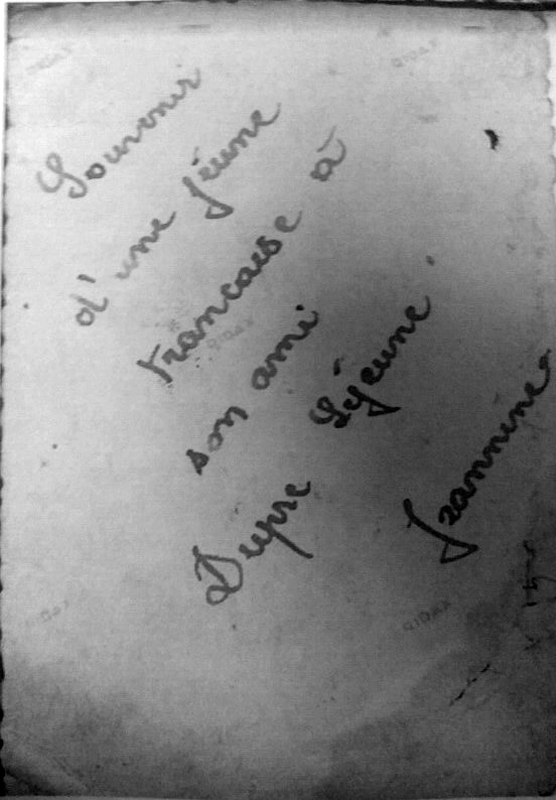 Souvenir
d'une jeune
francaise à
son ami
Dupre Lejeune
Jeannine